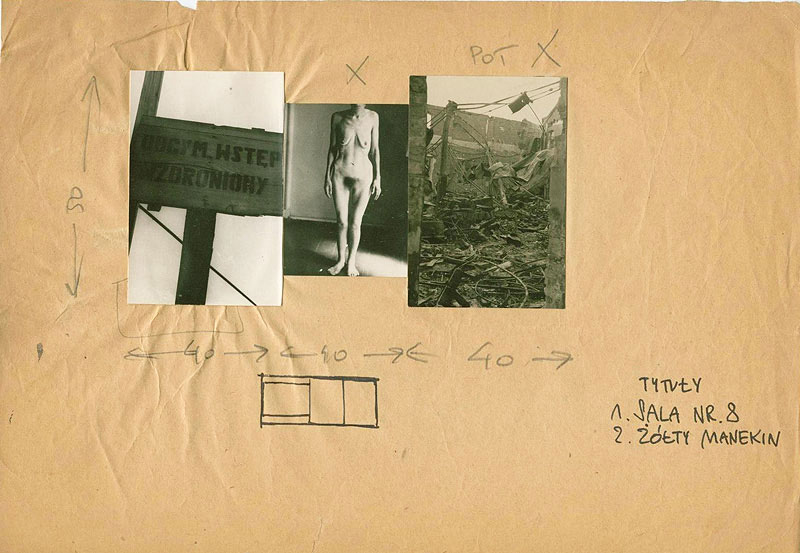 X
X
OBCYM. WSTĘP
WZBRONIONY
40 40 40
TYTUŁY
1. SALA NR. 8
2. ŻÓŁTY MANEKIN